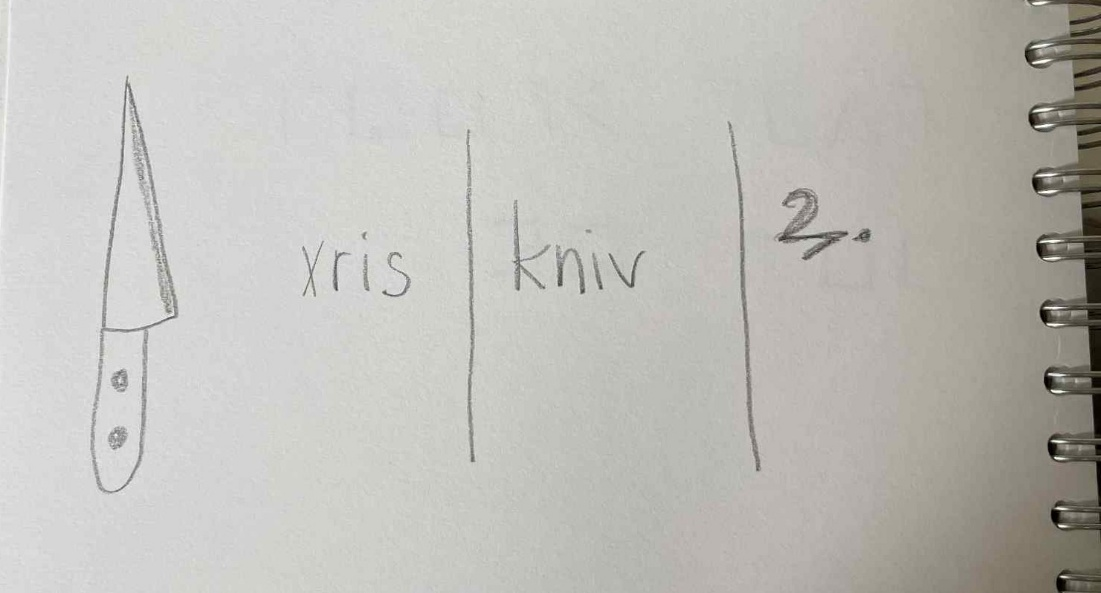 xris | kniv | 2.